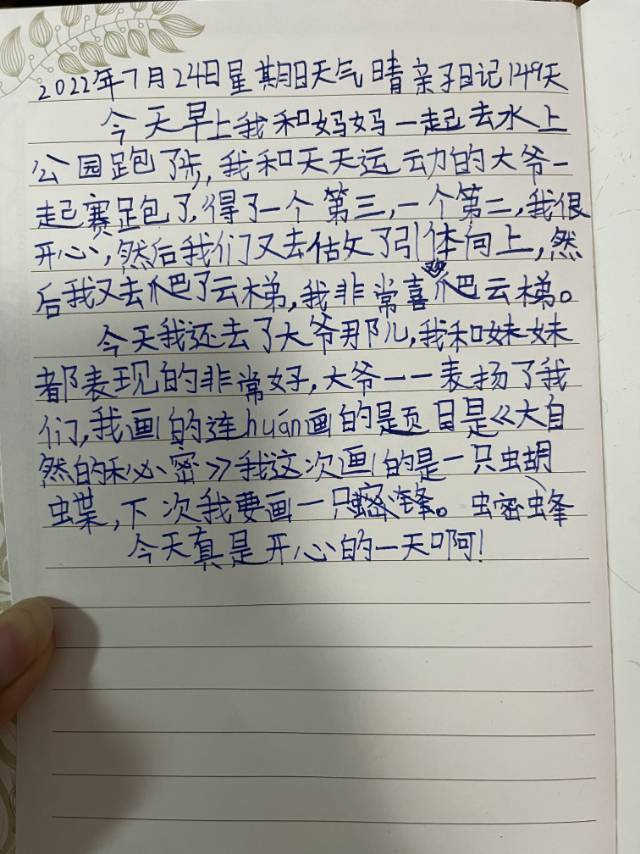 2022年7月24日星期日天气晴亲子日记149天
今天早上我和妈妈一起去水上
公园跑了步,我和天天运动的大爷一
起赛跑了,得了一个第三,一个第二,我很
开心,然后我们又去做了引体向上,然
后我又去爬了云梯,我非常喜欢爬云梯。
今天我还去了大爷那儿,我和妹妹
都表现的非常好,大爷一一表扬了我
们,我画的连huán画的题目是《大自
然的秘密》我这次画的是一只蝴
蝶,下次我要画一只蜜蜂。蜜蜂
今天真是开心的一天啊!